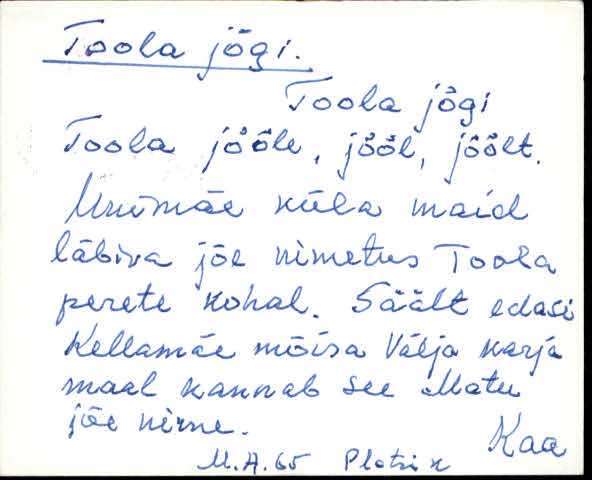 Toola jõgi.
Toola jõgi
Toola jõõle, jõõl, jõõlt.
küla maid
läbiva jõe nimetus Toola
perete kohal. Säält edasi
Kellamäe mõisa Välja karja
maal kannab see Matu
jõe nime.
Kaa
M.A.65 Plotnik